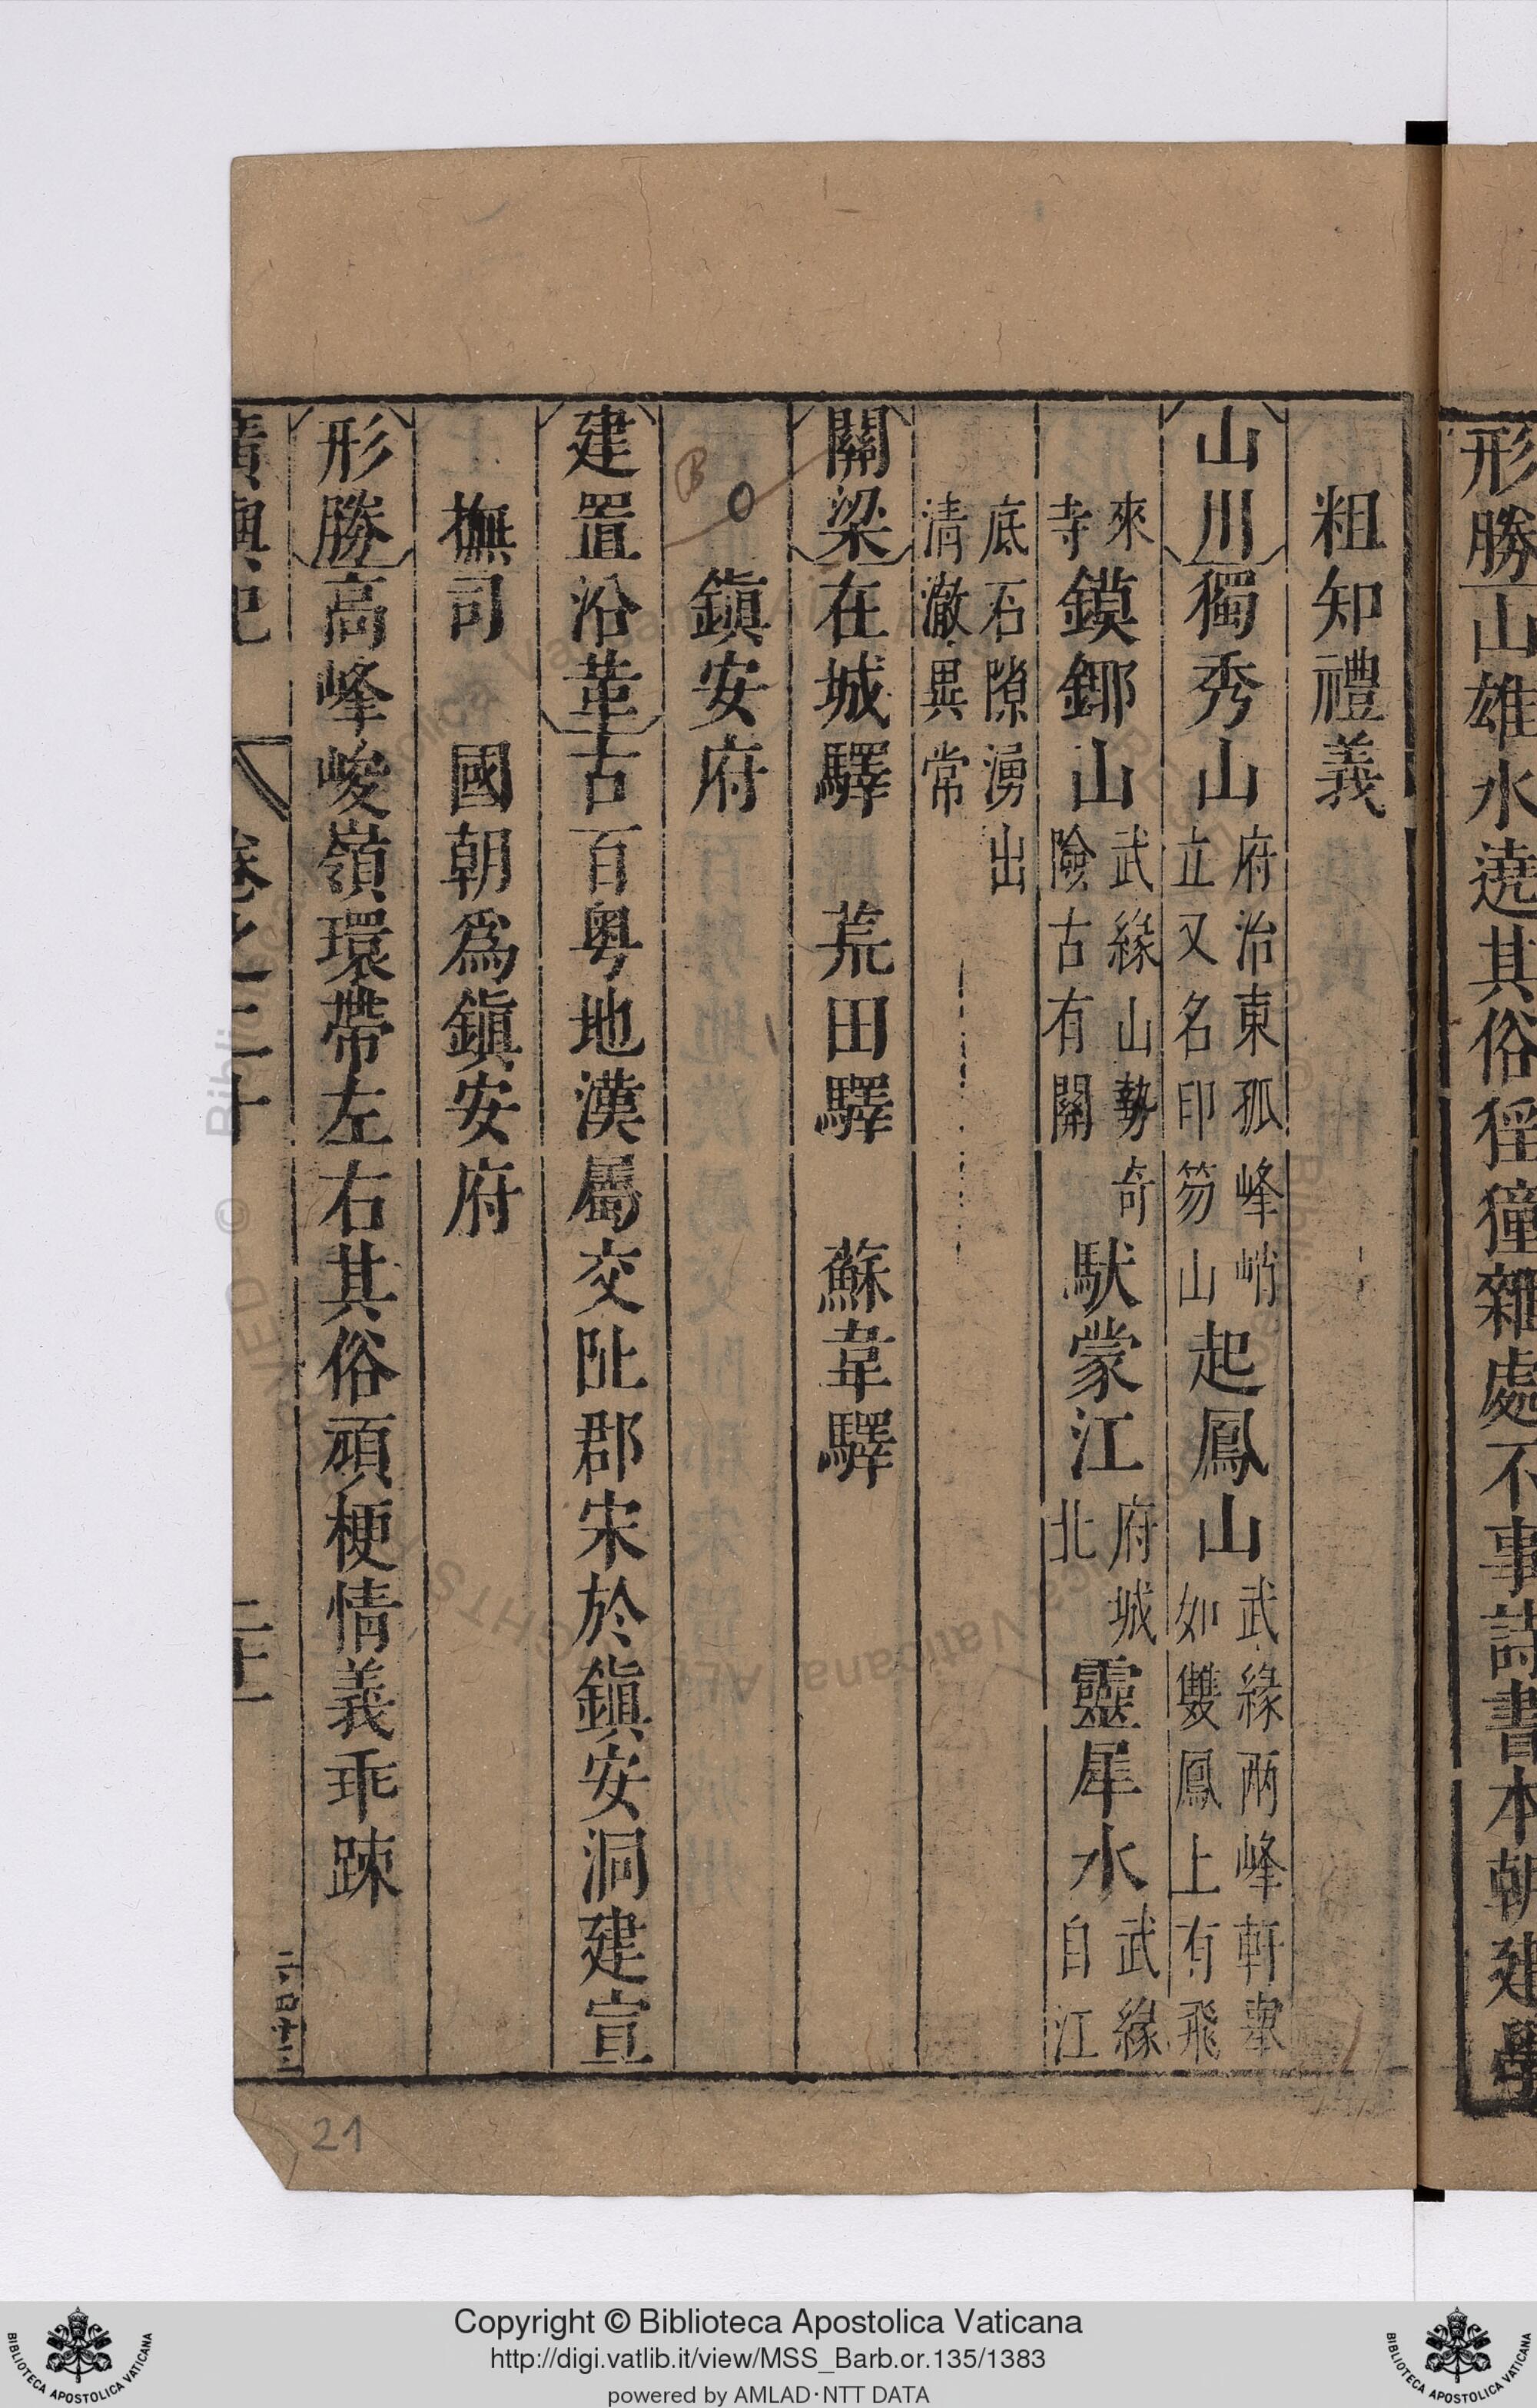 形勝山雄水遶其俗猺獞雜處不事詩書本朝建學
粗知禮義
山川獨秀山府治東孤峰峭立又名印笏山起鳳山武緣兩峰軒舉如雙鳳上有飛
來寺鏌鎁山武緣山勢奇險古有關馱蒙江府城北靈犀水武緣自江
底石隙湧出清澈異常
關梁在城驛 荒田驛 蘇韋驛
鎮安府
建置沿革古百粤地漢屬交阯郡宋於鎮安洞建宣
撫司 國朝爲鎮安府
形勝高峰峻嶺環帶左右其俗頑梗情義乖踈
廣輿記 卷之二十
B
0
21
Copyright © Biblioteca Apostolica Vaticana
http://digi.vatlib.it/view/MSS_Barb.or.135/1383
powered by AMLAD·NTT DATA
BIBLIOTECA APOSTOLICA VATICANA
BIBLIOTECA APOSTOLICA VATICANA